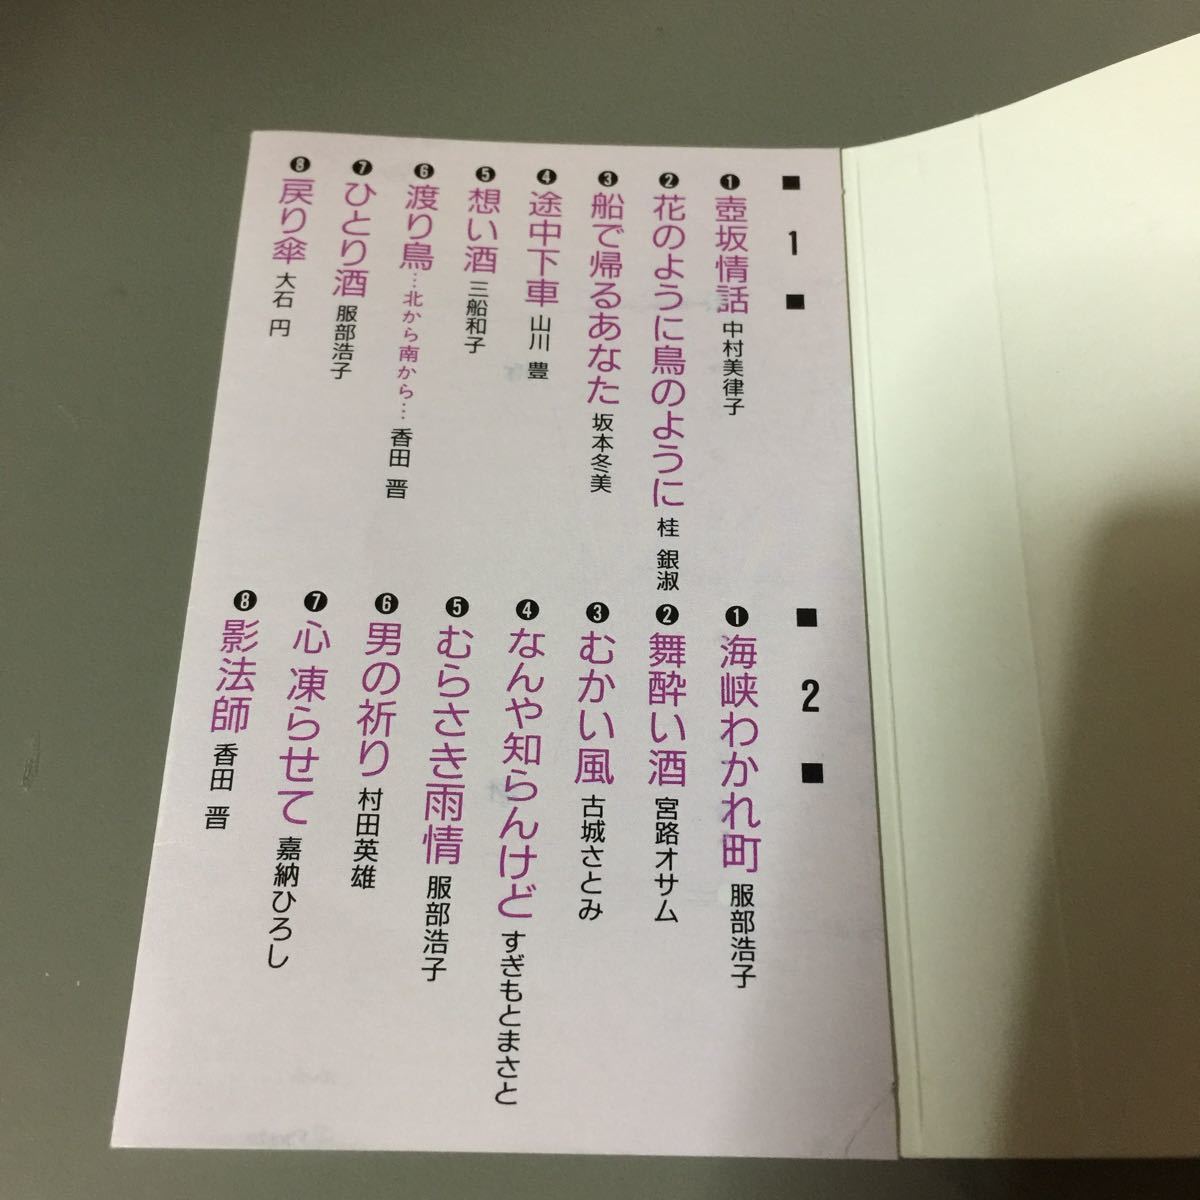 ■ 1 ■
❶壺坂情話 中村美律子
❷花のように鳥のように 桂 銀淑
❸船で帰るあなた 坂本冬美
❹途中下車 山川 豊
❺想い酒 三船和子
❻渡り鳥…北から南から… 香田 晋
❼ひとり酒 服部浩子
❽戻り傘 大石 円
■ 2 ■
❶海峡わかれ町 服部浩子
❷舞酔い酒 宮路オサム
❸むかい風 古城さとみ
❹なんや知らんけど すぎもとまさと
❺むらさき雨情 服部浩子
❻男の祈り 村田英雄
❼心 凍らせて 嘉納ひろし
❽影法師 香田 晋